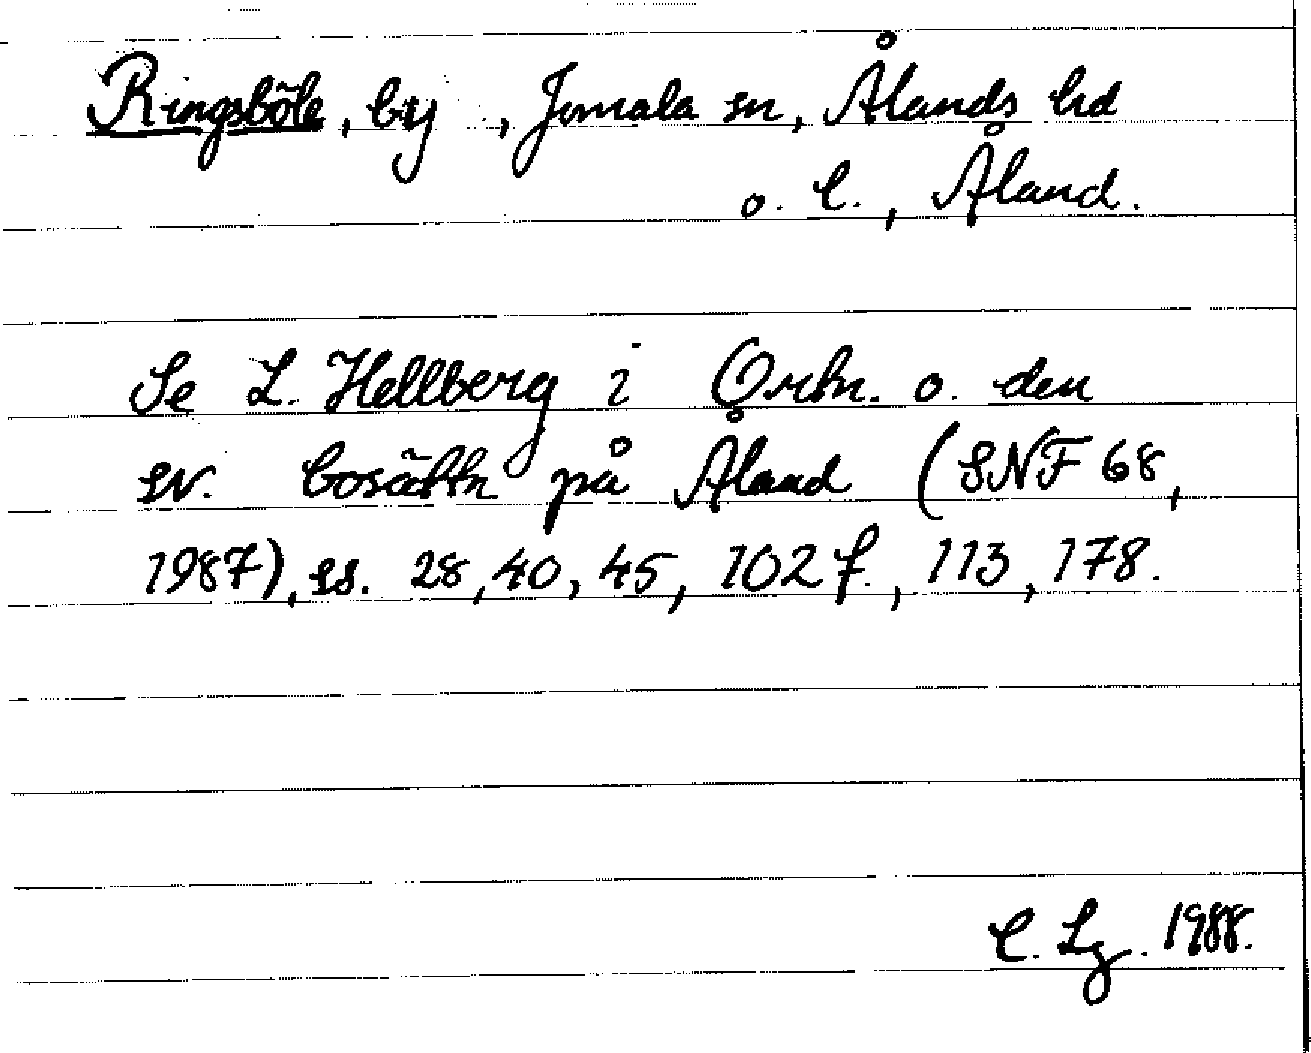 Ringsböle, by , Jomala sn, Ålands hd
o. l., Åland.
Se L. Hellberg i Ortn. o. den
sv. bosättn på Åland (SNF 68,
1987), ss. 28, 40, 45, 102 f., 113, 178.
C. Lg. 1988.